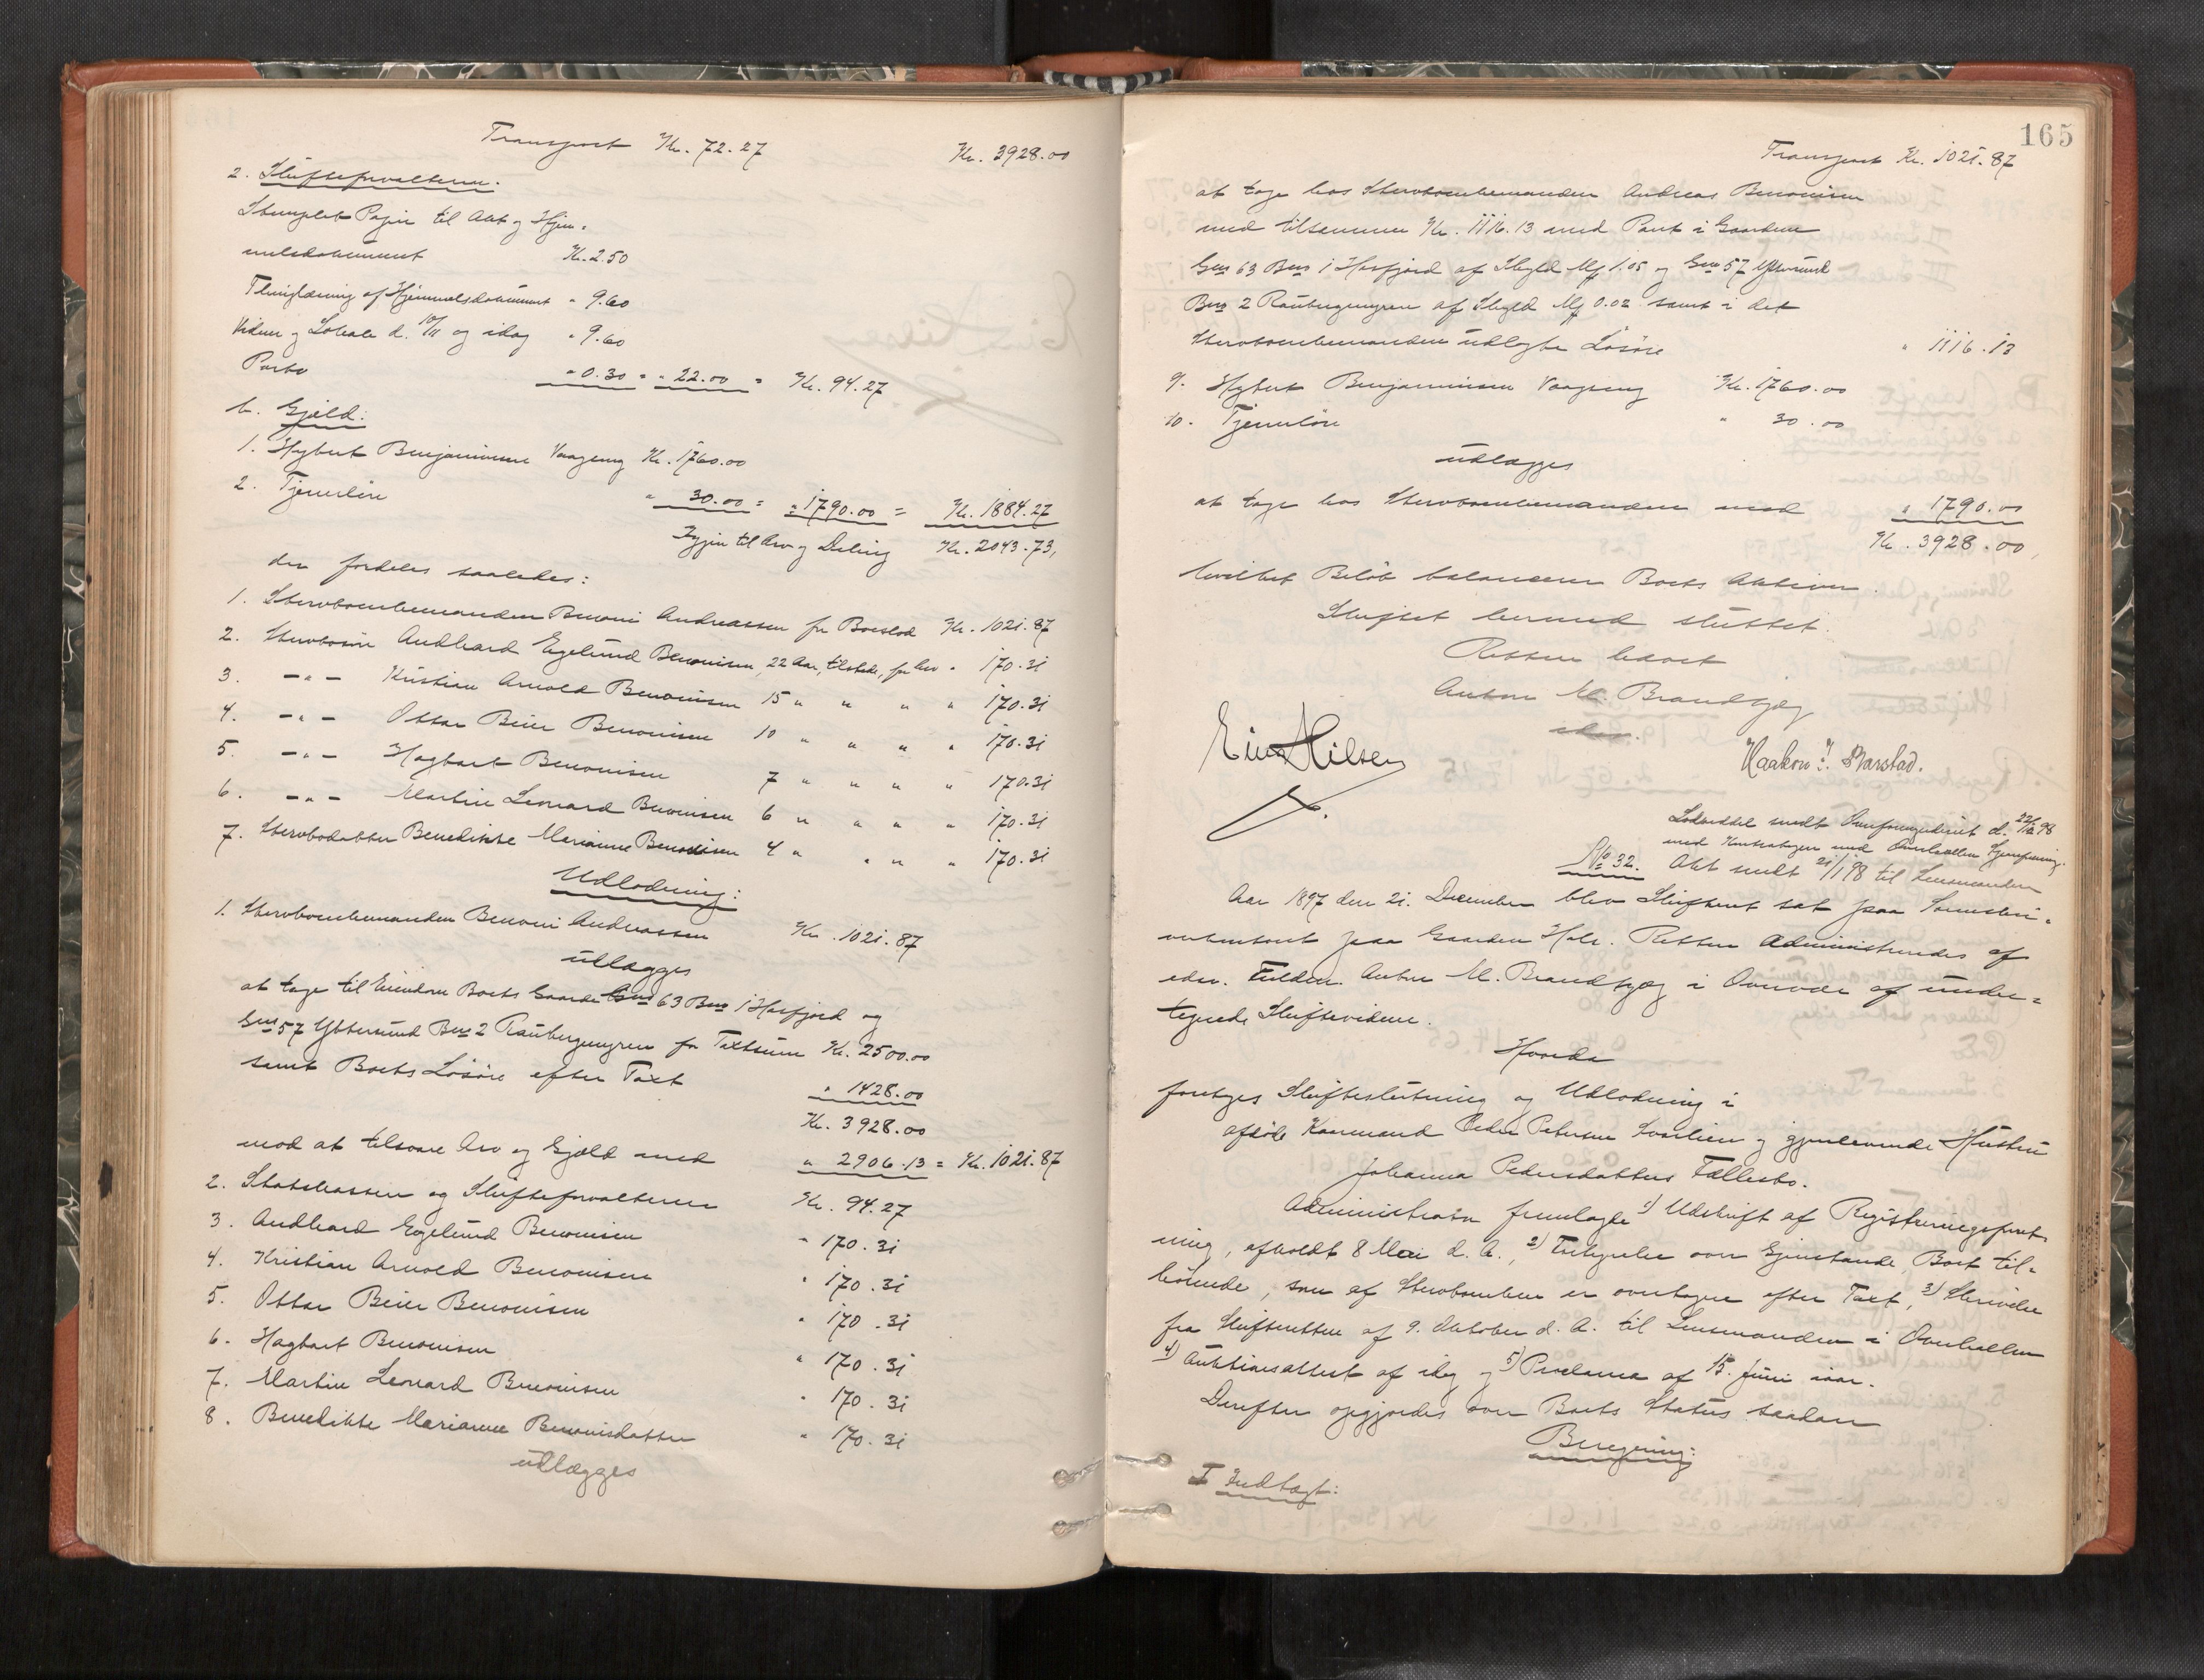 Transport Kr. 72.27 Kr. 3928.00
2. Skifteforvalteren.
Stemplet Papir til Akt og Hjem-
melsdokument Kr. 2.50
Thinglæsning af Hjemmelsdokument " 9.60
Vidner og Lokale d. 10/11 og idag " 9.60
Porto " 0.30 = " 22.00 = Kr. 94.27
b. Gjæld:
1. Hybert Benjaminsen Vaageng Kr. 1760.00
2. Tjenerløn " 30.00 = " 1790.00 = Kr. 1884.27
Igjen til Arv og Deling Kr. 2043.73,
der fordeles saaledes:
1. Stervboenkemanden Benoni Andreassen for Boeslod Kr. 1021.87
2. Stervbosøn Andhard Egelund Benonisen, 22 Aar, tilstede, for Arv " 170.31
3. - " - Kristian Arnold Benonisen 15 " " " " 170.31
4. - " - Ottar Beier Benonisen 10 " " " " 170.31
5. - " - Hagbart Benonisen 7 " " " " 170.31
6. - " - Martin Leonard Benonisen 6 " " " " 170.31
7. Stervbodatter Benedikte Marianne Benonisen 4 " " " " 170.31
Udlodning:
1. Stervboenkemanden Benoni Andreassen Kr. 1021.87
udlægges
at tage til Eiendom Boets Gaarde Gno 63 Bno 1 Horfjord og
Gno 57 Yttersund Bno 2 Raubergmyren for Taxtsum Kr. 2500.00
samt Boets Løsøre efter Taxt " 1428.00
Kr. 3928.00
mod at tilsvare Arv og Gjæld med " 2906.13 = Kr. 1021.87
2. Statskassen og Skifteforvalteren Kr. 94.27
3. Andhard Egelund Benonisen " 170.31
4. Kristian Arnold Benonisen " 170.31
5. Ottar Beier Benonisen " 170.31
6. Hagbart Benonisen " 170.31
7. Martin Leonard Benonisen " 170.31
8. Benedikte Marianne Benonisdatter " 170.31
udlægges
165
Transport Kr. 1021.87
at tage hos Stervboenkemanden Andreas Benonisen
med tilsammen Kr. 1116.13 med Pant i Gaardene
Gno 63 Bno 1 Horfjord af Skyld Mk 1.05 og Gno 57 Yttersund
Bno 2 Raubergmyren af Skyld Mk 0.02 samt i det
Stervboenkemanden udlagte Løsøre " 1116.13
9. Hybert Benjaminsen Vaageng Kr. 1760.00
10. Tjenerløn " 30.00
udlægges
at tage hos Stervboenkemanden med " 1790.00
Kr. 3928.00,
hvilket Beløb balancerer Boets Aktiver.
Skiftet hermed sluttet.
Retten hævet
Anton M. Brandtzæg
Haakon Barstad.
Lodseddel sendt Overformynderiet d. 22/12 98
med Overhallen
No 32. Akt sendt 21/1 98 til Lensmanden
Aar 1897 den 21. December blev Skifteret sat paa Sorenskri-
verkontoret paa Gaarden Hals. Retten administreredes af
edsv. Fuldm. Anton M. Brandtzæg i Overvær af under-
tegnede Skiftevidner.
Hvorda
foretoges Skifteslutning og Udlodning i
afdøde Kaarmand Peder Petersen og gjenlevende Hustru
Johanna Pedersdatters Fællesbo.
Administrator fremlagde 1) Udskrift af Registreringsforret-
ning, afholdt 8 Mai d. A., 2) Fortegnelse over Gjenstande, Boet til-
hørende, som af Stervboenken er overtagne efter Taxt, 3) Skrivelse
fra Skifteretten af 9. Oktober d. A. til Lensmanden i Overhallen
4) Auktionsattest af idag og 5) Proclama af 15. Juni iaar.
Derefter opgjordes over Boets Status saadan
Beregning:
I Indtægt: